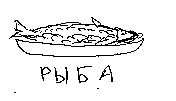 РЫБА